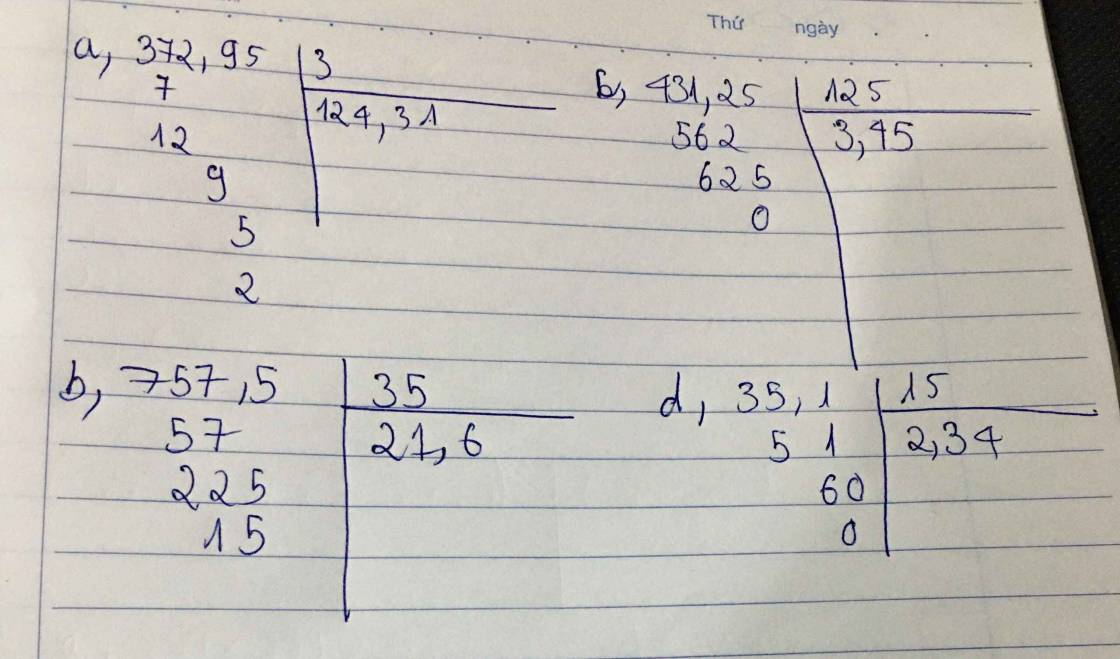 Thứ ngày
a, 372,95 3
7 124,31
12
9
5
2
b, 431,25 125
562 3,45
625
0
b, 757,5 35
57 21,6
225
15
d, 35,1 15
5 1 2,34
60
0